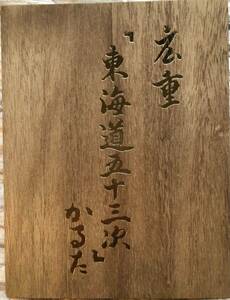 広重
『東海道五十三次』
かるた